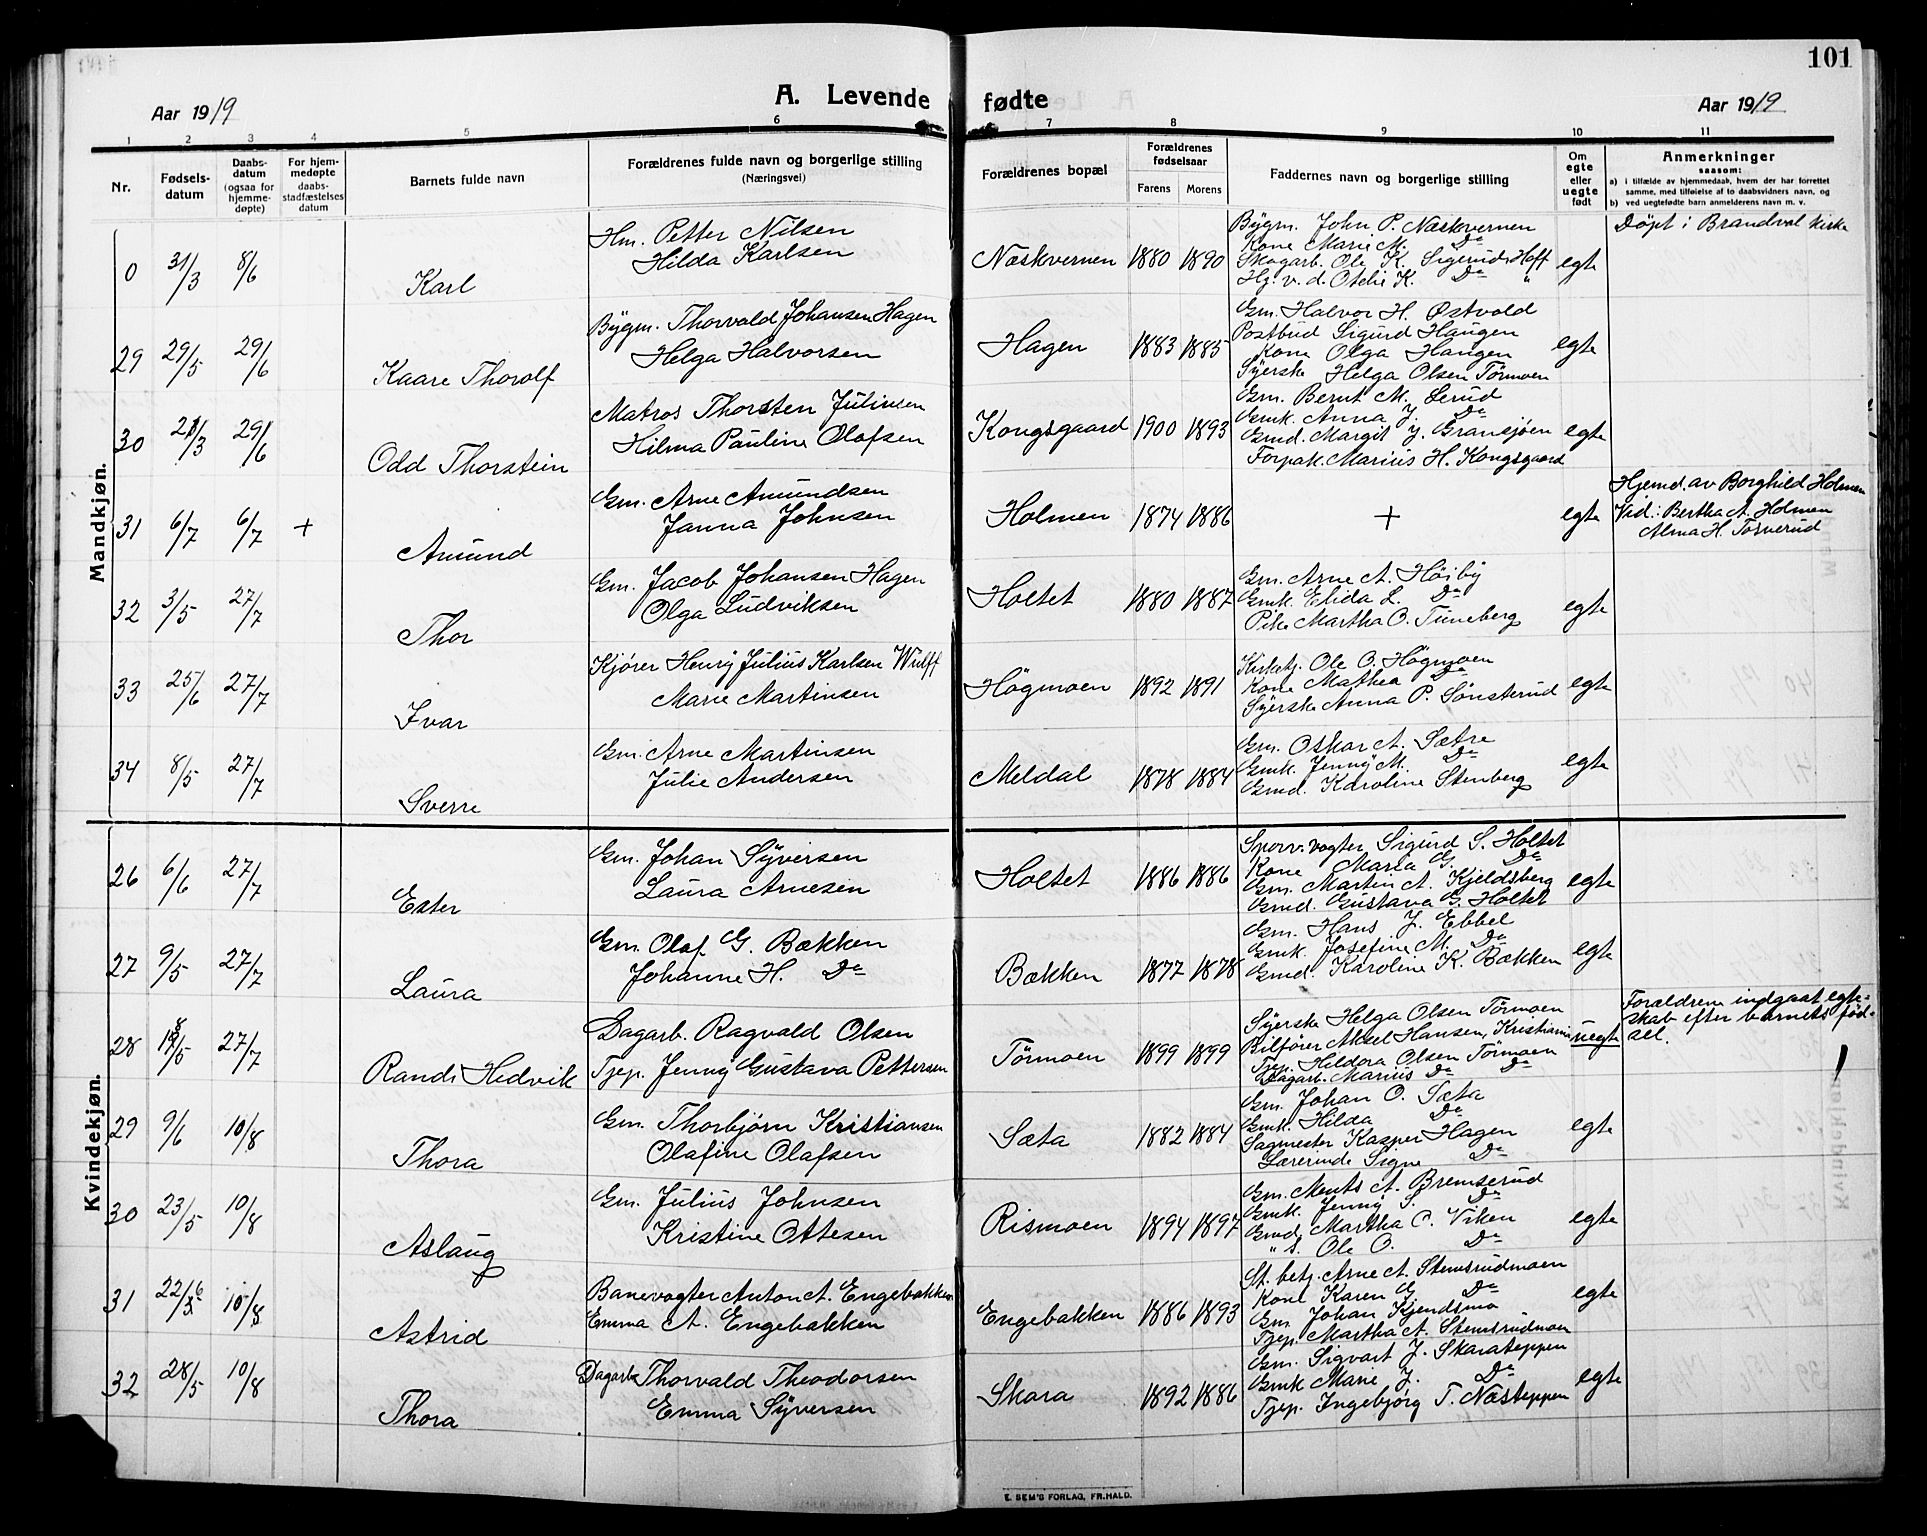 101
Aar 1919
A. Levende fødte
Aar 1919
1 2 3 4 5 6 7 8 9 10 11
Nr.
Fødselsdatum
Daabsdatum (ogsaa for hjemmedøpte)
For hjemmedøpte daabsstadfæstelses datum
Barnets fulde navn
Forældrenes fulde navn og borgerlige stilling
(Næringsvei)
Forældrenes bopæl
Forældrenes fødselsaar
Farens Morens
Faddernes navn og borgerlige stilling
Om egte eller uegte født
Anmerkninger
saasom:
a) i tilfælde av hjemmedaab, hvem der har forrettet samme, med tilføielse af to daabsvidners navn, og
b) ved uegtefødte barn anmelderens navn m. v.
Mandkjøn.
0 31/3 8/6 Karl
Hm. Petter Nilsen
Hilda Karlsen
Næskvernen 1880 1890
Bygm. John P. Næskvernen
Kone Marie M. Do
Skogarb. Ole K. Sigerud, Hoff
Hg. v. d. Otelie K. Do "
egte
Døpt i Brandval kirke
29 29/5 29/6 Kaare Thorolf
Bygm. Thorvald Johansen Hagen
Helga Halvorsen
Hagen 1883 1885
Gm. Halvor H. Østvold
Postbud Sigurd Haugen
Kone Olga Haugen
Syerske Helga Olsen Tørmoen
egte
30 21/3 29/6 Odd Thorstein
Matros Thorsten Julinsen
Hilma Pauline Olafsen
Kongsgaard 1900 1893
Gm. Bernt M. Lerud
Gmk. Anna J. Do
Gmd. Margit J. Gransjøen
Forpak. Marius H. Kongsgaard
egte
31 6/7 6/7 + Amund
Gm. Arne Amundsen
Janna Johnsen
Holmen 1874 1886
+
egte
Hjemd. av Borghild Holmen
Vid.: Bertha A. Holmen
Alma H. Torverud
32 3/5 27/7 Thor
Gm. Jacob Johansen Hagen
Olga Ludviksen
Holtet 1880 1887
Gm. Arne A. Høiby
Gmk. Elida L. Do
Pike Martha O. Tuneberg
egte
33 25/6 27/7 Ivar
Kjører Henry Julius Karlsen Wulff
Marie Martinsen
Høgmoen 1892 1891
Kirketj. Ole O. Høgmoen
Kone Mathea Do
Syerske Anna P. Sønsterud
egte
34 8/5 27/7 Sverre
Gm. Arne Martinsen
Julie Andersen
Meldal 1878 1884
Gm. Oskar A. Sætre
Gmk. Jenny M. Do
Gmd. Karoline Stenberg
egte
Kvindekjøn.
26 6/6 27/7 Ester
Gm. Johan Syversen
Laura Arnesen
Holtet 1886 1886
Sporv. vogter Sigurd S. Holtet
Kone Marla G. Do
Gm. Martin A. Kjeldsberg
Gmd. Gustava G. Holtet
egte
27 9/5 27/7 Laura
Gm. Olaf G. Bækken
Johanne H. Do
Bækken 1877 1878
Gm. Hans J. Ebbel
Gmk. Josefine M. Do
Gmd. Karoline K. Bækken
egte
28 18/5 27/7 Randi Hedvik
Dagarb. Ragvald Olsen
Tjep. Jenny Gustava Pettersen
Tørmoen 1899 1899
Syerske Helga Olsen Tørmoen
Bilfører Aksel Hansen, Kristiania
Tjep. Hildora Olsen Tørmoen
Dagarb. Marius Do Do
uegte
Forældrene indgaat egteskab efter barnets fødsel.
29 9/6 10/8 Thora
Gm. Thorbjørn Kristiansen
Olafine Olafsen
Sæta 1882 1884
Gm. Johan O. Sæta
Gmk. Hilda Do
Sagmester Kasper Hagen
Lærerinde Signe Do
egte
30 23/5 10/8 Aslaug
Gm. Julius Johnsen
Kristine Ottesen
Rismoen 1894 1897
Gm. Ments A. Bremserud
Gmk. Jenny S. Do
Gmd. Martha O. Viken
" s. Ole O. Do
egte
31 22/6 10/8 Astrid
Banevogter Anton A. Engebakken
Emma A. Engebakken
Engebakken 1886 1893
St. betj. Arne A. Stemsrudmoen
Kone Karen G. Do
Gm. Johan Kjendsmo
Tjep. Martha A. Stemsrudmoen
egte
32 28/5 10/8 Thora
Dagarb. Thorvald Theodorsen
Emma Syversen
Skara 1892 1886
Gm. Sigvart J. Skarateppen
Gmk Marie J. Do
Tjep. Ingebjørg T. Næsteppen
egte
E. SEM'S FORLAG, FR.HALD.